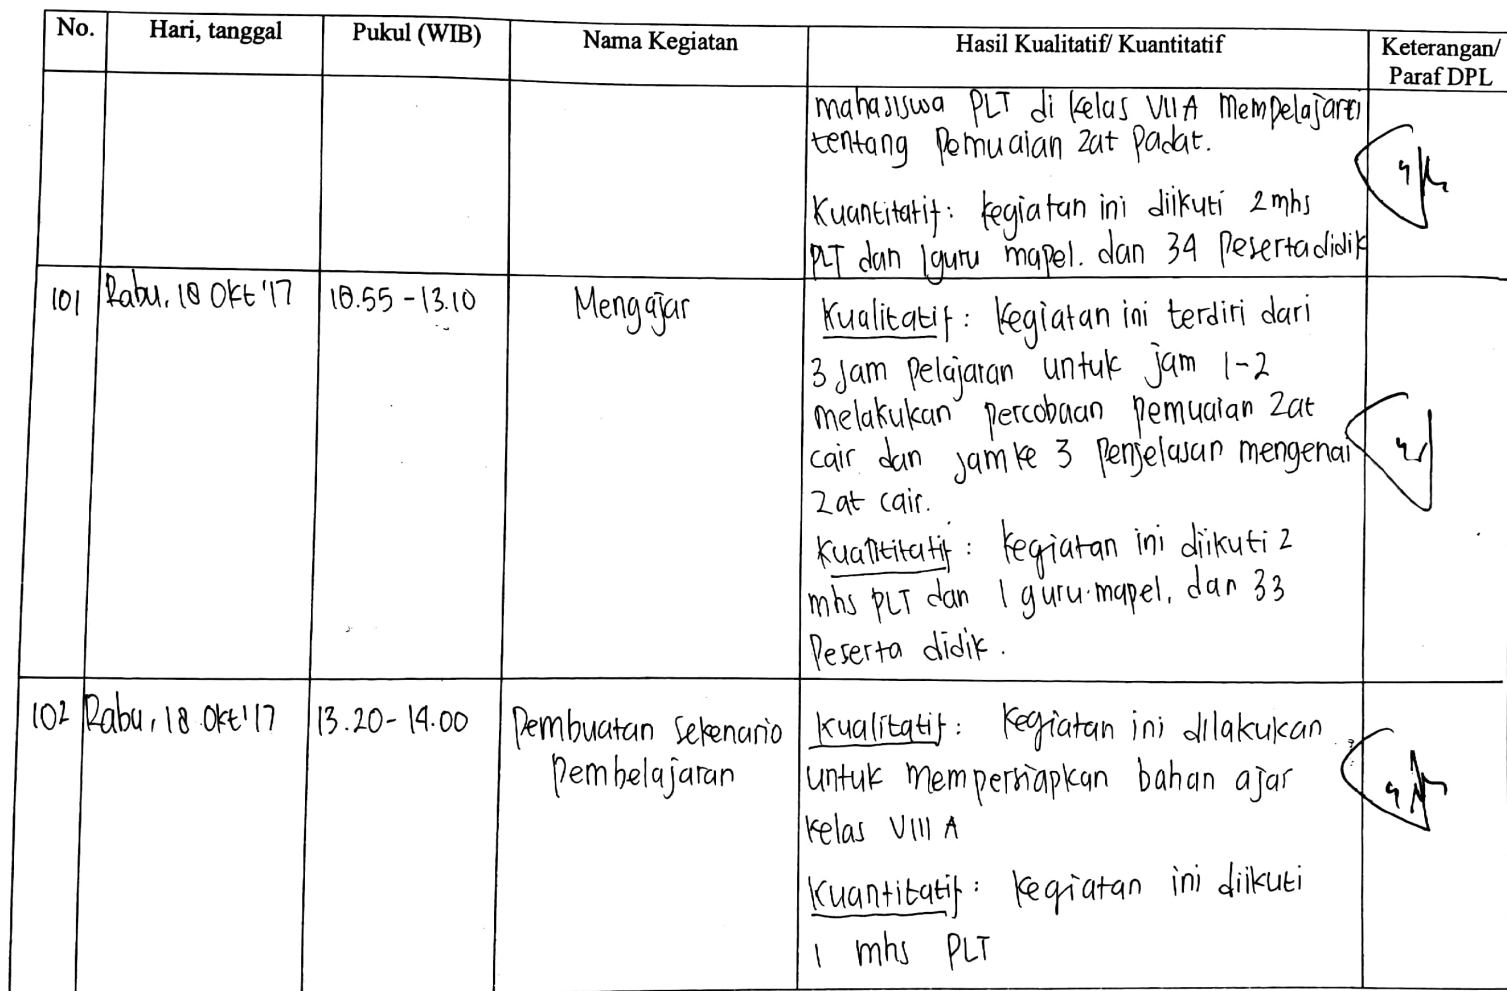 No. Hari, tanggal Pukul (WIB) Nama Kegiatan Hasil Kualitatif/ Kuantitatif Keterangan/ Paraf DPL
mahasiswa PLT di kelas VII A mempelajari
tentang Pemuaian zat Padat.
Kuantitatif : kegiatan ini diikuti 2 mhs
PLT dan 1 guru mapel. dan 34 Peserta didik
101 Rabu, 18 Okt '17 10.55 - 13.10 Mengajar Kualitatif : kegiatan ini terdiri dari
3 Jam Pelajaran untuk jam 1-2
melakukan percobaan pemuaian zat
cair dan jam ke 3 Penjelasan mengenai
zat cair.
Kuantitatif : kegiatan ini diikuti 2
mhs PLT dan 1 guru mapel, dan 33
Peserta didik.
102 Rabu, 18 Okt '17 13.20 - 14.00 Pembuatan Sekenario Kualitatif : Kegiatan ini dilakukan
Pembelajaran untuk mempersiapkan bahan ajar
kelas VIII A
Kuantitatif : kegiatan ini diikuti
1 mhs PLT